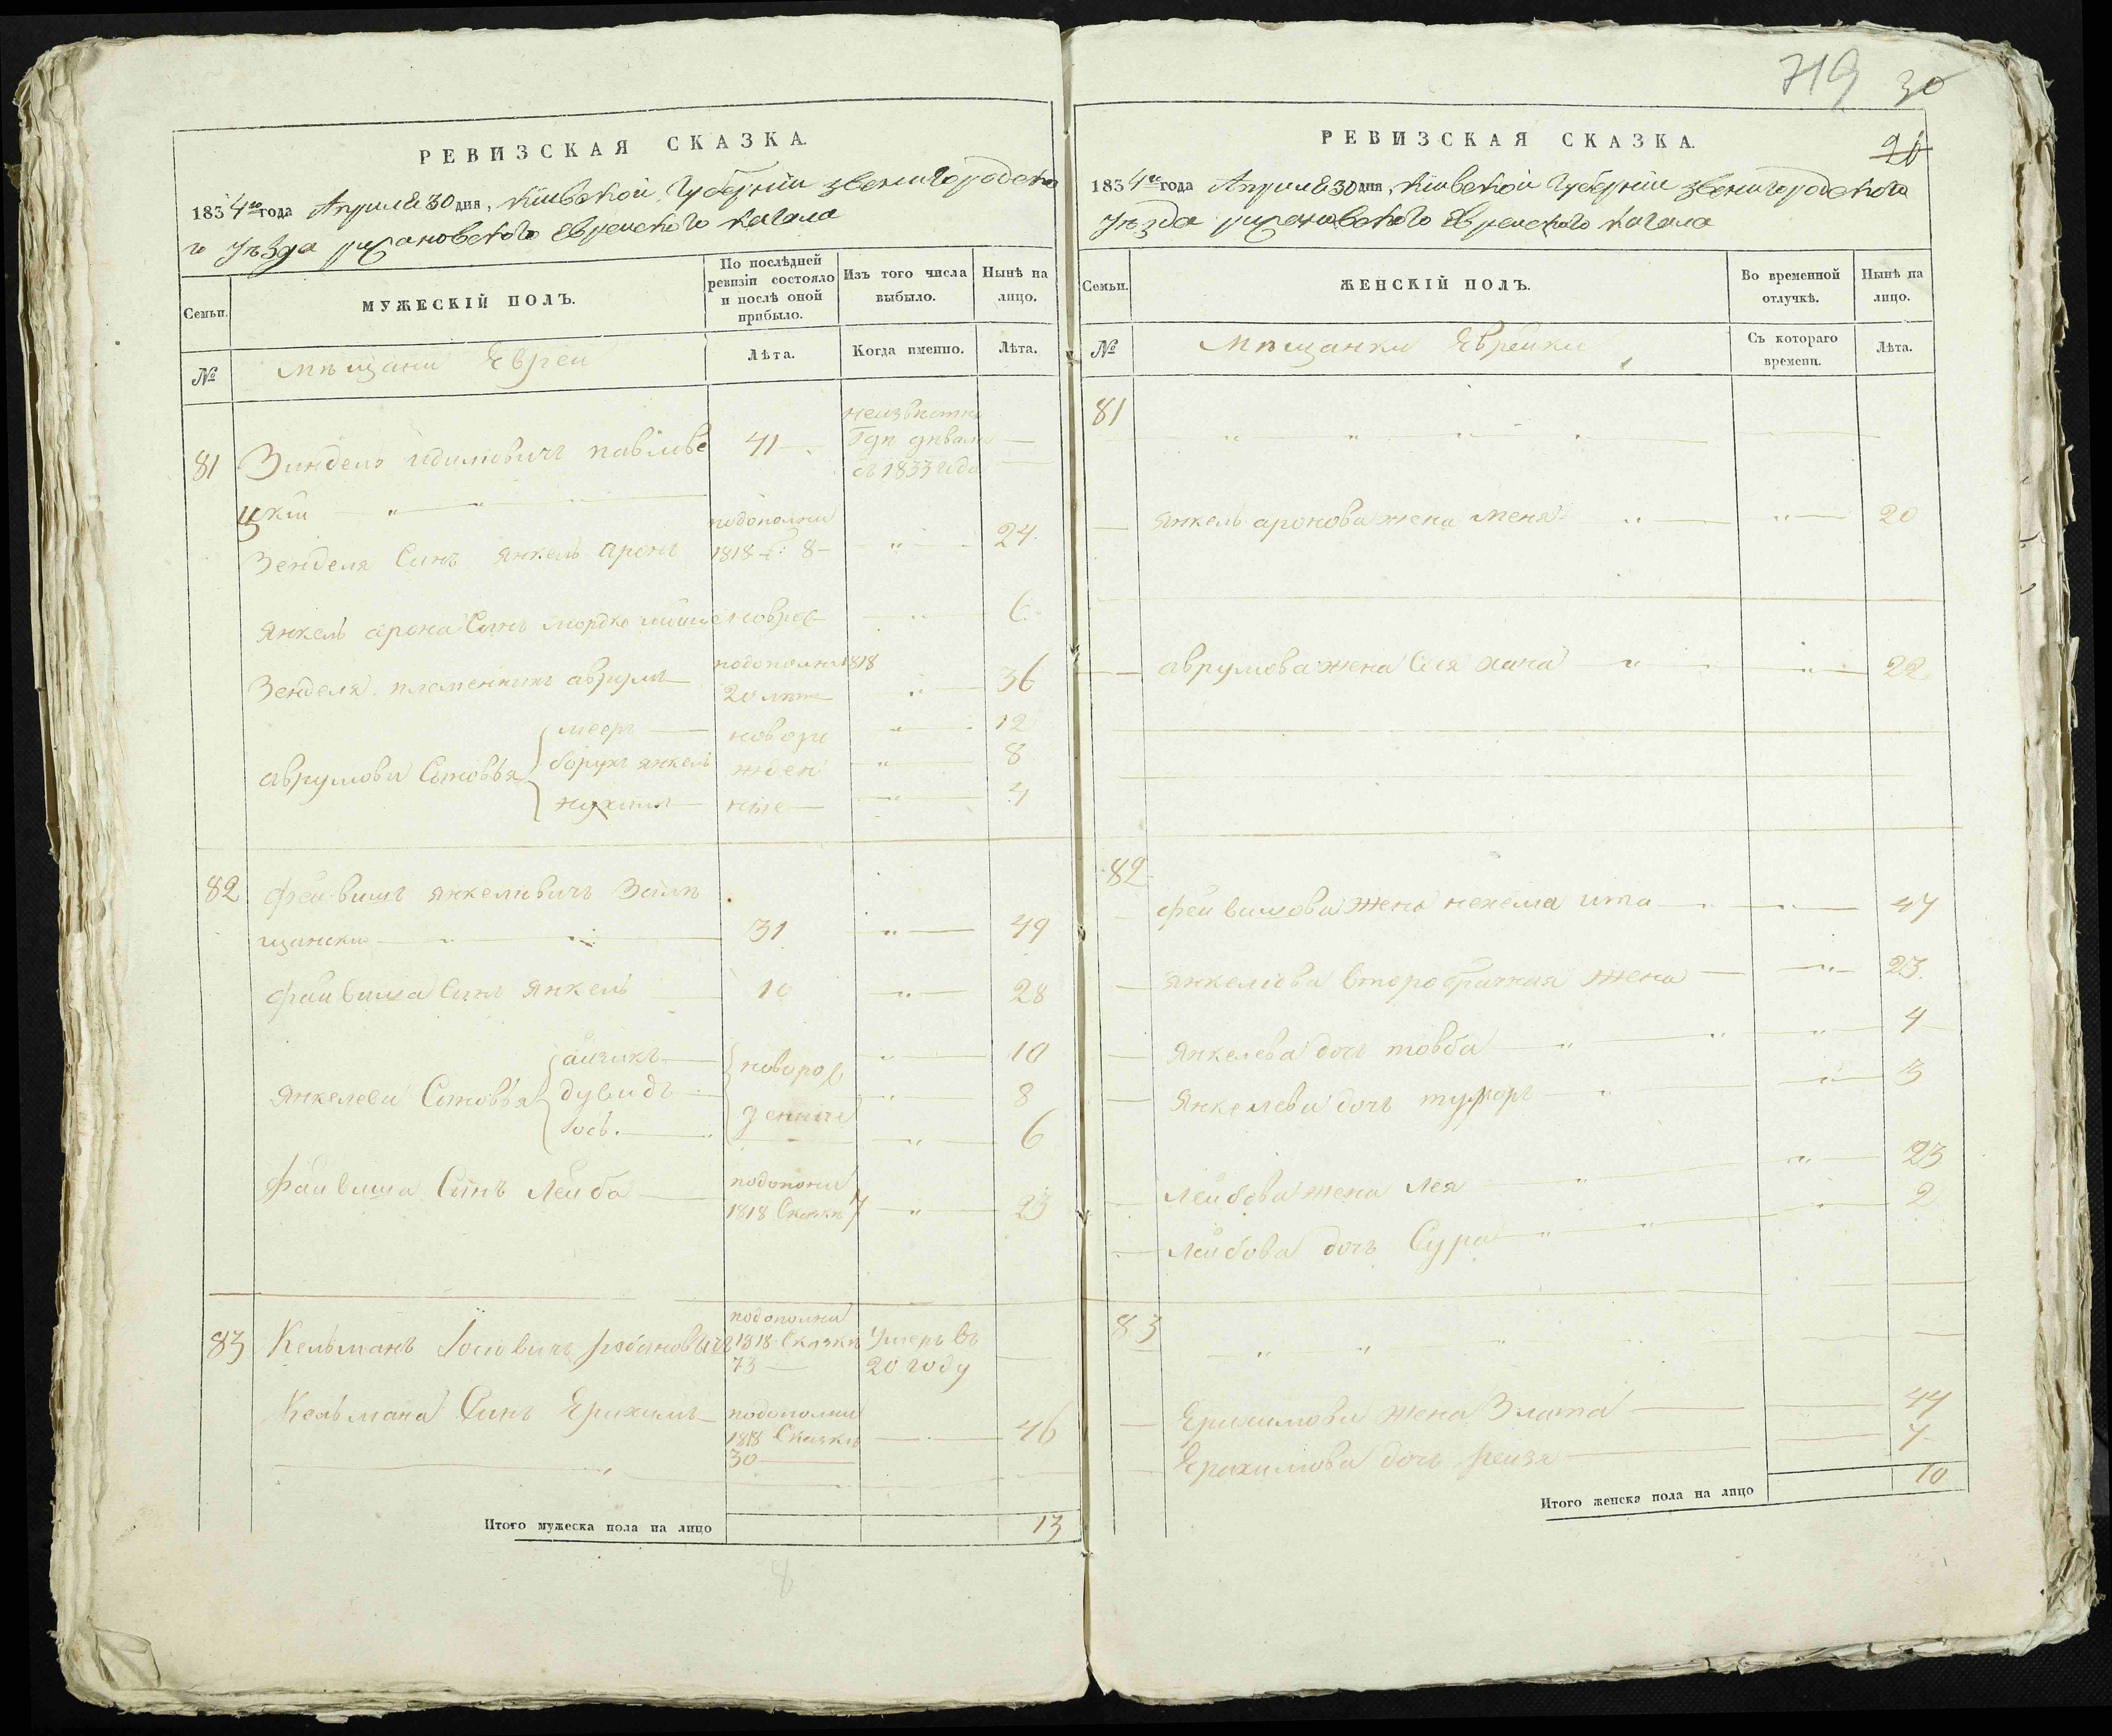 719 30
РЕВИЗСКАЯ СКАЗКА.
1834го года Апрѣля 30 дня, Кіевской Губерніи звенигородска
го уѣзда рижановского Еврейского кагала
Семьи.
МУЖЕСКІЙ ПОЛЪ.
По послѣдней
ревизіи состояло
и послѣ оной
прибыло.
Изъ того числа
выбыло.
Нынѣ на
лицо.
№
Мѣщани Евреи
Лѣта.
Когда именно.
Лѣта.
81 Зиндель павлове 41
неизвѣстно
гдѣ
съ 1833 года
цкій
Зенделя Синъ Янкель аронъ
подополни
1818 г: 8 24
Янкель арона Синъ мордко новрож 6
Зенделя племенникъ аврумъ
подополни 1818
20 лѣт 36
аврумови Синовья
мееръ 12
борухъ янкель 8
нухимъ 4
новорож
жден
ные
82 Фейвишъ Янкелевичъ
щански 31 49
Файвиша Синъ Янкель 10 28
Янкелеви Синовья
айзикъ 10
дувидъ 8
Іось. 6
новорож
денние
Файвиша Синъ Лейба
подополни
1818 Сказки 7 23
83 Кельманъ Іосіовичъ
подополни
1818 Сказки
73
умеръ въ
20 году
Кельмана Синъ Ерихимъ
подополни
1818 Сказки
30 46
Итого мужеска пола на лицо 13
8
РЕВИЗСКАЯ СКАЗКА.
26
1834го года Апрѣля 30 дня, Кіевской Губерніи звенигородского
уѣзда рижановского Еврейского кагала
Семьи.
ЖЕНСКІЙ ПОЛЪ.
Во временной
отлучкѣ.
Нынѣ на
лицо.
№
Мѣщанки Еврейки
Съ котораго
времени.
Лѣта.
81
Янкель аронова жена Меня 20
аврумова жена Сся хана 22
82
Фейвишови жена нехема ита 47
Янкелева второбрачная жена 23
Янкелева дочь товба 4
Янкелеви дочь 3
Лейбови жена Лея 23
Лейбова дочь Сура 2
83
Ерихимови жена Злата 44
Ерихимова дочь рейзя 7
Итого женска пола на лицо 10